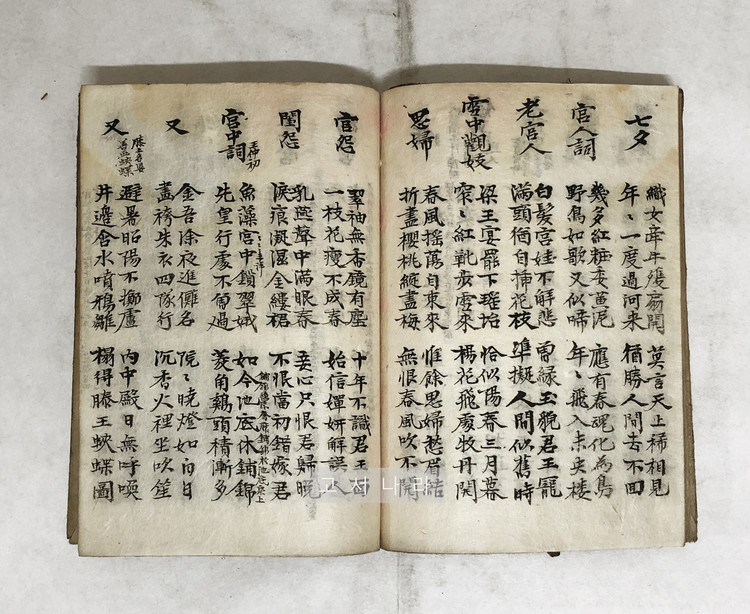 七夕
織女牽牛雙扇開
年〻一度過河來
莫言天上稀相見
猶勝人間去不回
宮人詞
幾多紅粧委
野鳥如歌又似啼
應有春魂化為鳥
年〻飛入未央樓
老宮人
白髮宮娃不解悲
滿頭猶自揷花枝
曾緣玉貌君王寵
準擬人間似舊時
雪中觀妓
梁王宴罷下瑤坮
窄〻紅靴步雪來
恰似陽春三月暮
楊花飛處牧丹開
思婦
春風搖蕩自東來
折盡櫻桃綻盡梅
惟餘思婦愁眉結
無恨春風吹不開
宮怨
翠袖無香鏡有塵
一枝花瘦不成春
十年不識君王面
始信嬋妍解誤人
閨怨
乳燕聲中滿眼春
淚痕凝湿金縷裙
妾心只恨君歸晚
不恨當初錯嫁君
宮中詞
王仲初
魚藻宮中鎖翠娥
先皇行處不曾過
如今池底休鋪錦
菱角鷄頭積漸多
又
金吾除夜進儺名
畫袴朱衣四隊行
院〻曉燈如白日
沉香火裡坐吹笙
又
避暑昭陽不擲盧
井邊含水噴鴉雛
內中殿日無呼喚
榻得滕王蛺蝶圖
고서나라